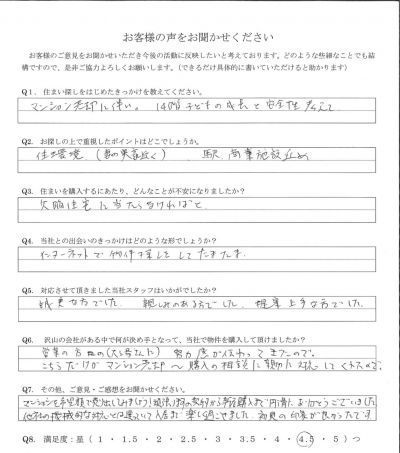 お客様の声をお聞かせください
お客様のご意見をお聞かせいただき今後の活動に反映したいと考えております。どのような些細なことでも結
構ですので、是非ご協力よろしくお願いします。（できるだけ具体的に書いていただけると助かります）
Q1. 住まい探しをはじめたきっかけを教えてください。
マンション売却に伴い。 子どもの成長と安全性考えて
Q2. お探しの上で重視したポイントはどこでしょうか。
住環境（妻の実家近く） 駅、商業施設近め
Q3. 住まいを購入するにあたり、どんなことが不安になりましたか？
欠陥住宅に当たらなければと
Q4. 当社との出会いのきっかけはどのような形でしょうか？
インターネットで物件探しをしてたまたま
Q5. 対応させて頂きました当社スタッフはいかがでしたか？
誠実な方でした。 親しみのある方でした。 上手な方でした。
Q6. 沢山の会社がある中で何が決め手となって、当社で物件を購入して頂けましたか？
営業の方の 努力、感が伝わってきたので。
こちらだけがマンション売却〜購入の相談に親切に対応してくれたので
Q7. その他、ご意見・ご感想をお聞かせください。
マンションを希望額で売出ししてみましょう! 購入まで円滑にありがとうございました
他社の機械的な対応とは違っていて入居まで楽しく過ごせました。 の印象が良かったです
Q8. 満足度：星（ 1 ・ 1.5 ・ 2 ・ 2.5 ・ 3 ・ 3.5 ・ 4 ・ 4.5 ・ 5 ）つ